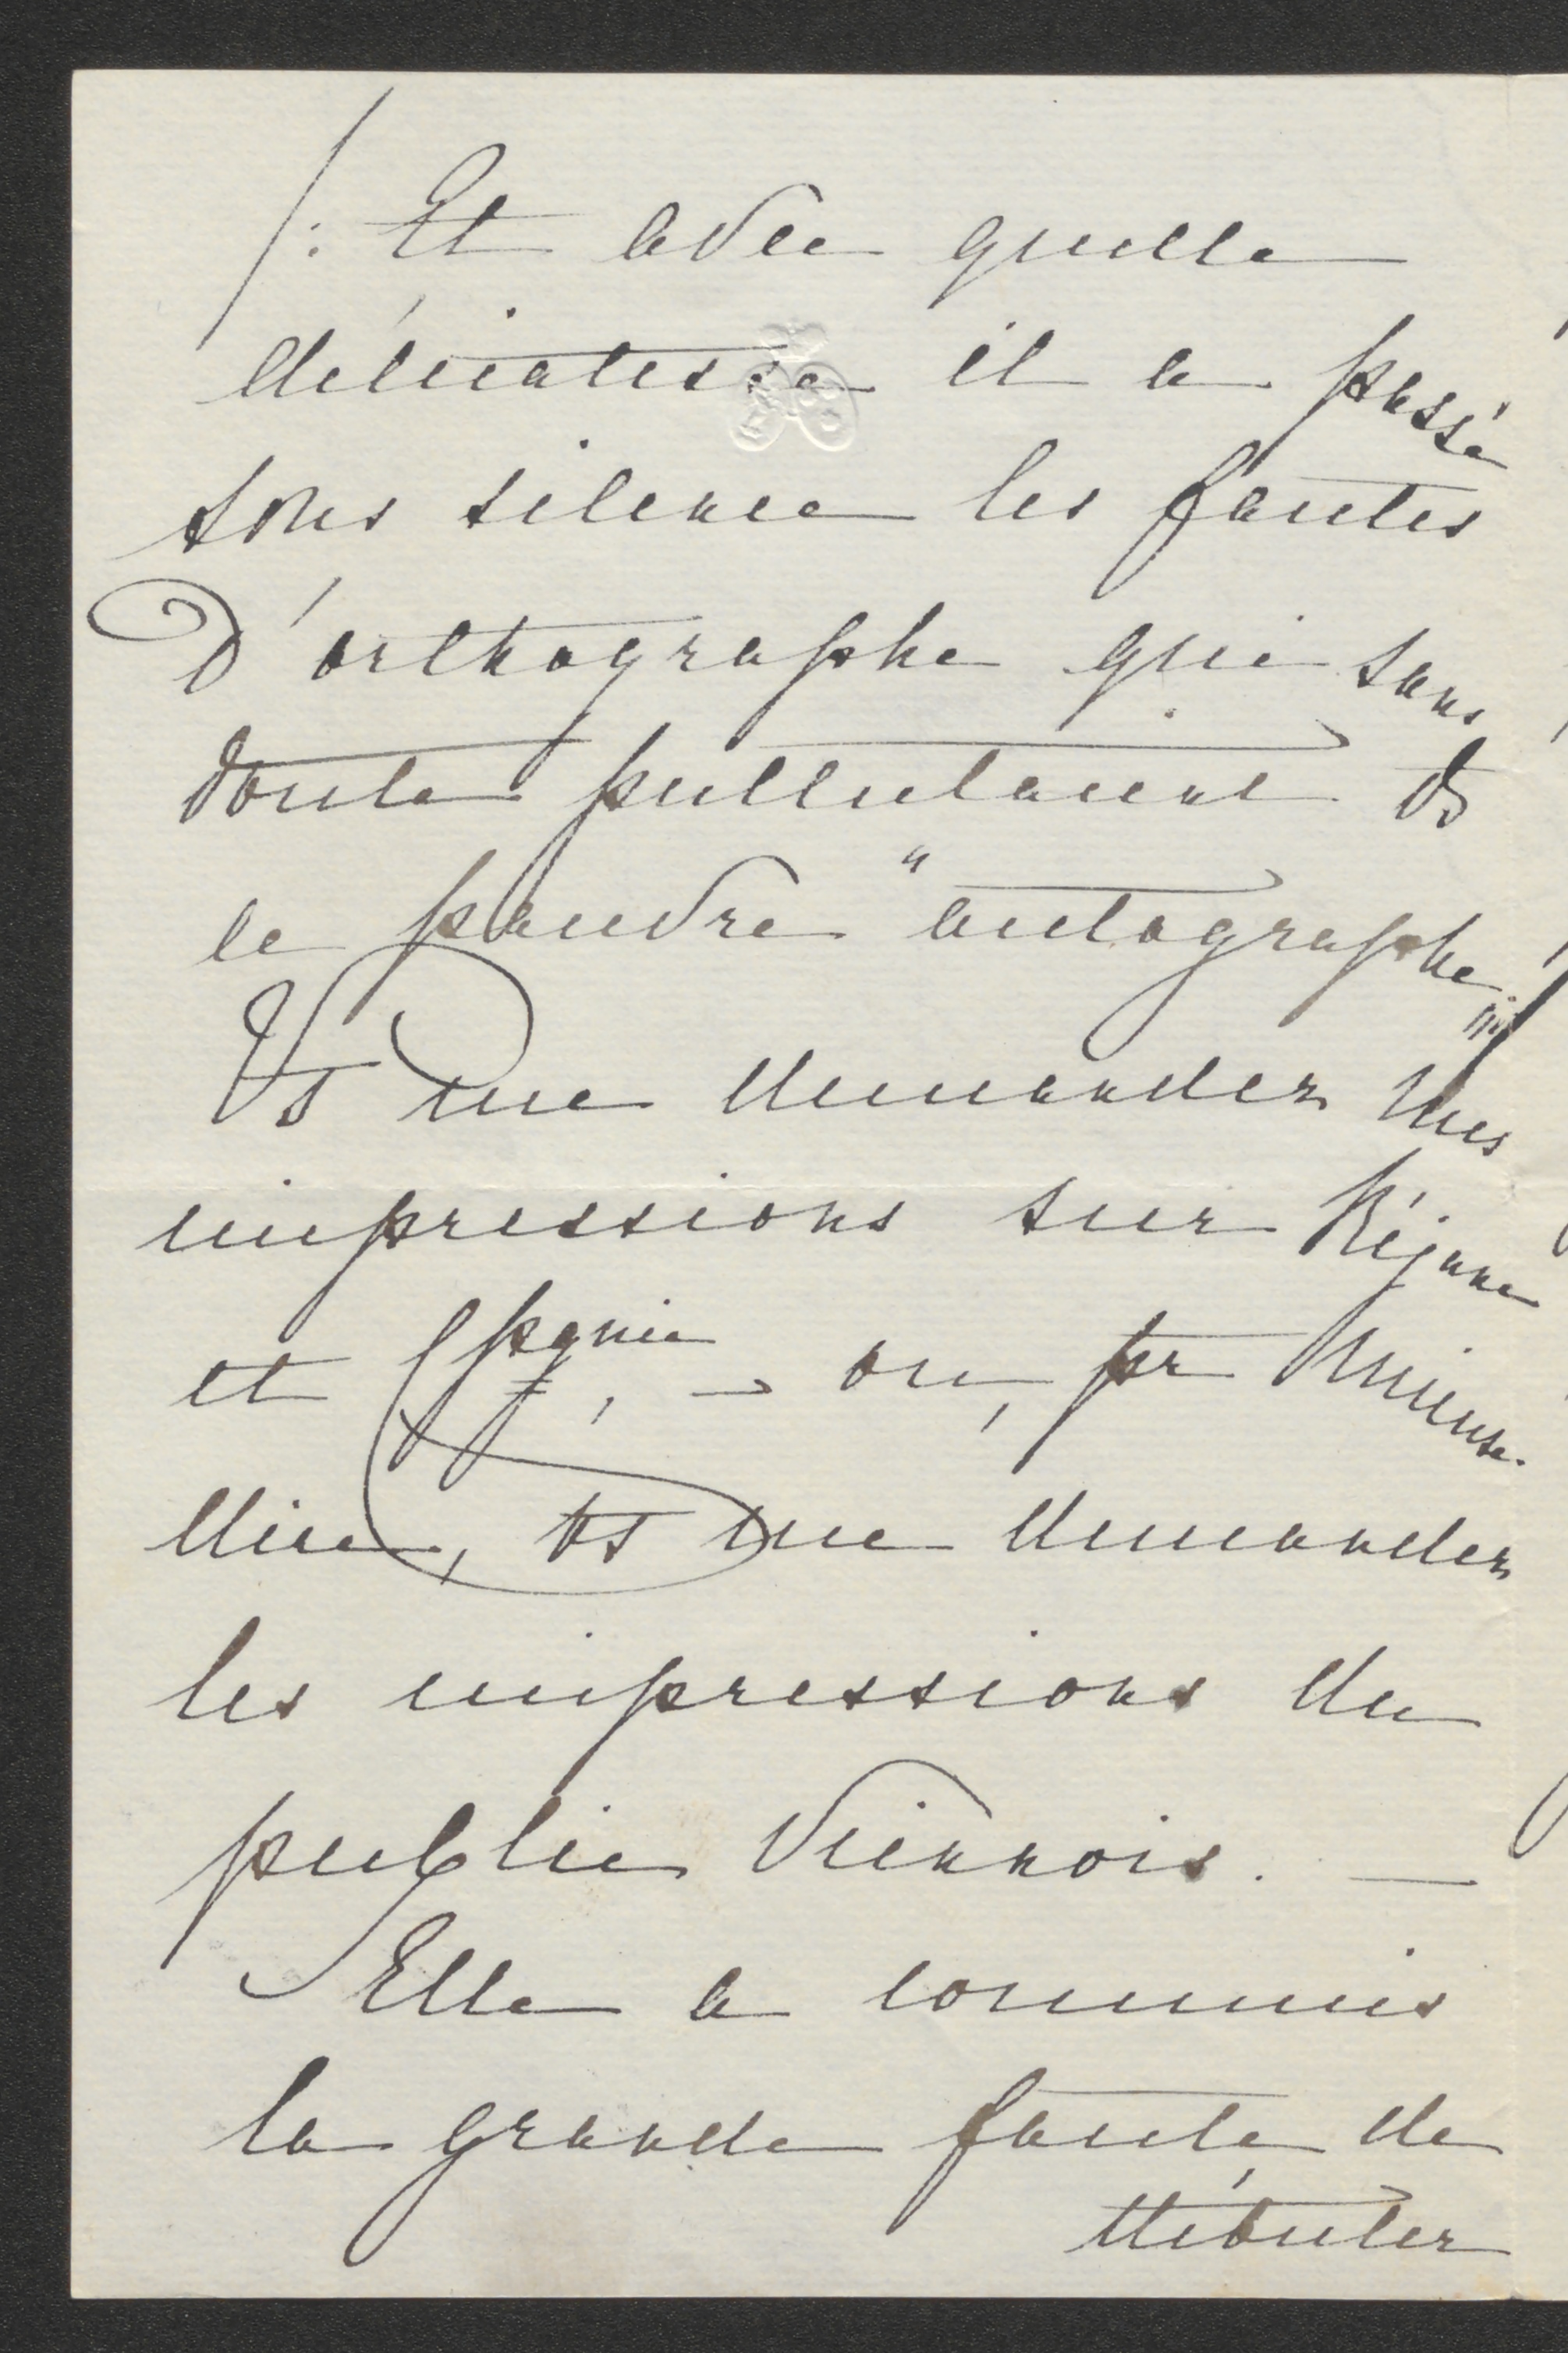 /: Et avec quelle
délicatesse il a passé
sous silence les fautes
d'orthographe qui sans
doute pullulaient ds
ce pauvre "autographe"!
Vs me demandez mes
impressions sur Réjane
et Cpgnie, – ou, pr mieux
dire, vs me demandez
les impressions du
public Viennois. —
Elle a commis
la grande faute de
débuter